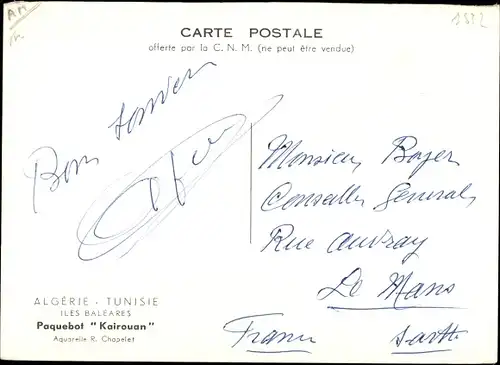 AM
1522
CARTE POSTALE
offerte par la C. N. M. (ne peut être vendue)
Bon Souvenir
Monsieur Boyer
Conseiller General
Rue Auvray
Le Mans
France Sarthe
ALGÉRIE - TUNISIE
ILES BALÉARES
Paquebot "Kairouan"
Aquarelle R. Chapelet